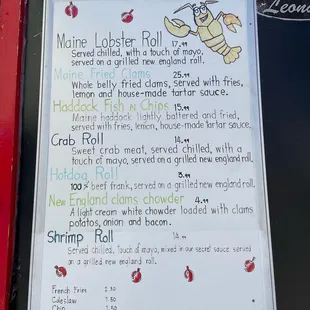 Leona
Maine Lobster Roll 17.99
Served chilled, with a touch of mayo,
served on a grilled new england roll.
Maine Fried Clams 25.99
Whole belly fried clams, served with fries,
lemon and house-made tartar sauce.
Haddock Fish N Chips 15.99
Maine haddock lightly battered and fried,
served with fries, lemon, house-made tartar sauce.
Crab Roll 14.99
Sweet crab meat, served chilled, with a
touch of mayo, served on a grilled new england roll.
Hotdog Roll 8.99
100% beef frank, served on a grilled new england roll.
New England clams chowder 4.99
A light cream white chowder loaded with clams
potatos, onion and bacon.
Shrimp Roll 14.99
Served chilled, touch of mayo, mixed in our secret sauce served
on a grilled new england roll.
French Fries 2.50
Coleslaw 1.50
Chip 1.50